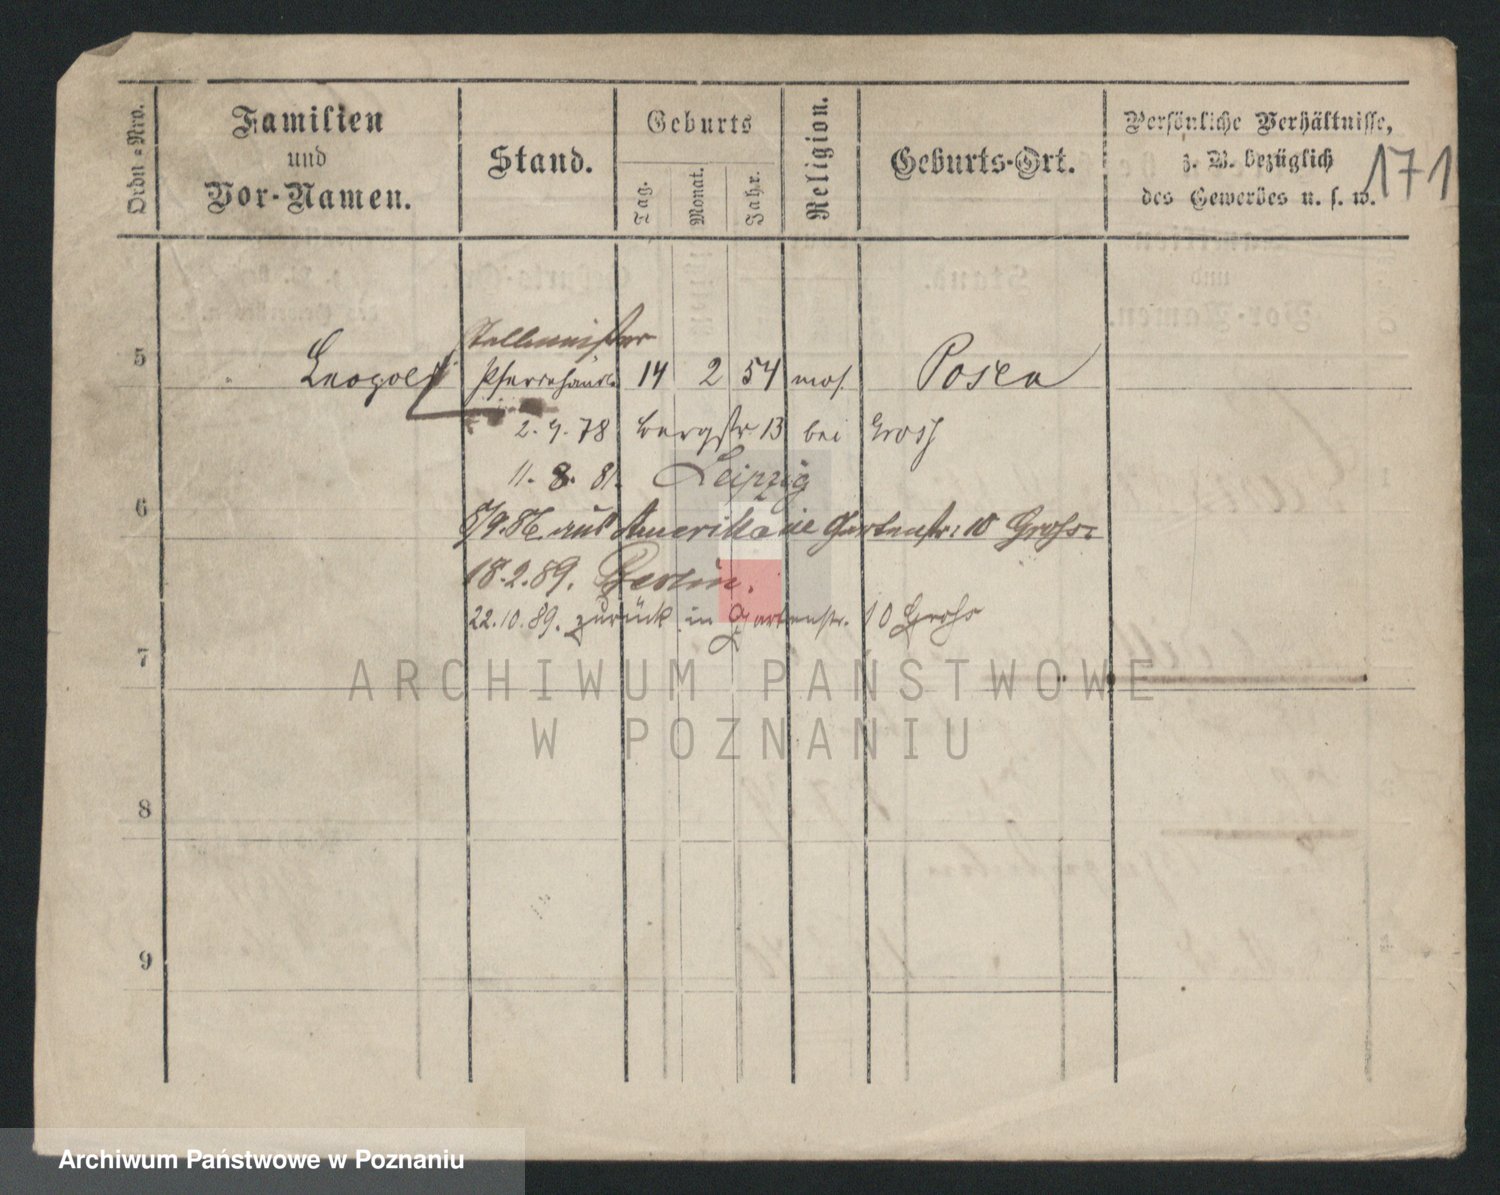 Ordn=Nro.
Familien
und
Vor-Namen.
Stand.
Geburts
Tag.
Monat.
Jahr.
Religion.
Geburts-Ort.
Persönliche Verhältnisse,
z. B. bezüglich
des Gewerbes u. s. w.
171
Stallmeister
5 " Leopold Pferdehändl. 14 2 54 mos. Posen
2. 4. 78 Bergstr. 13 bei Gross
11. 8. 81. Leipzig
6
5/9. 86. aus Amerika Gartenstr: 10 Gross:
18. 2. 89. Berlin.
22. 10. 89. zurück in Gartenstr. 10 Gross
7
ARCHIWUM PAŃSTWOWE
W POZNANIU
8
9
Archiwum Państwowe w Poznaniu